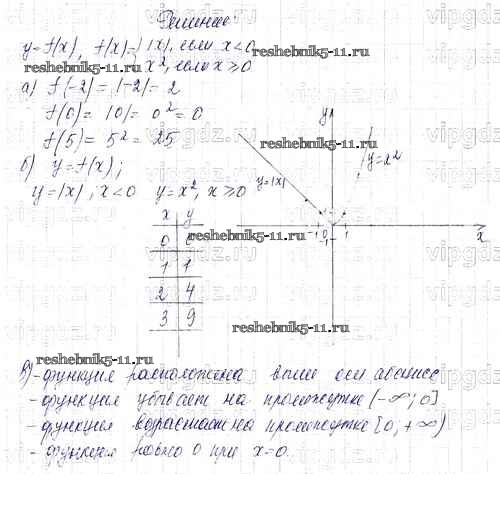 Решение
y=f(x), f(x)={|x|, если x<0
x², если x≥0
reshebnik5-11.ru
reshebnik5-11.ru
а) f(-2)=|-2|=2
f(0)=|0|=0²=0
f(5)=5²=25
б) y=f(x);
y=|x|, x<0 y=x², x≥0
x y
0 0
1 1
2 4
3 9
reshebnik5-11.ru
y
y=x²
y=|x|
-1 0 1
x
reshebnik5-11.ru
reshebnik5-11.ru
в) -функция расположена выше оси абсцисс
-функция убывает на промежутке (-∞;0]
-функция возрастает на промежутке [0;+∞)
- функция равна 0 при x=0.
vipgdz.ru